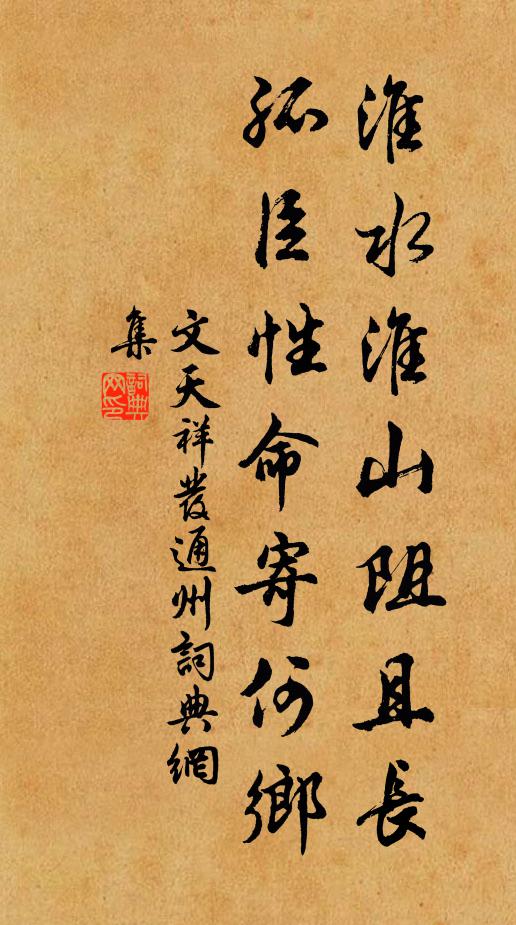 淮水淮山阻且長
孤臣性命寄何鄉
文天祥發通州詞典網
集
詞典
网印